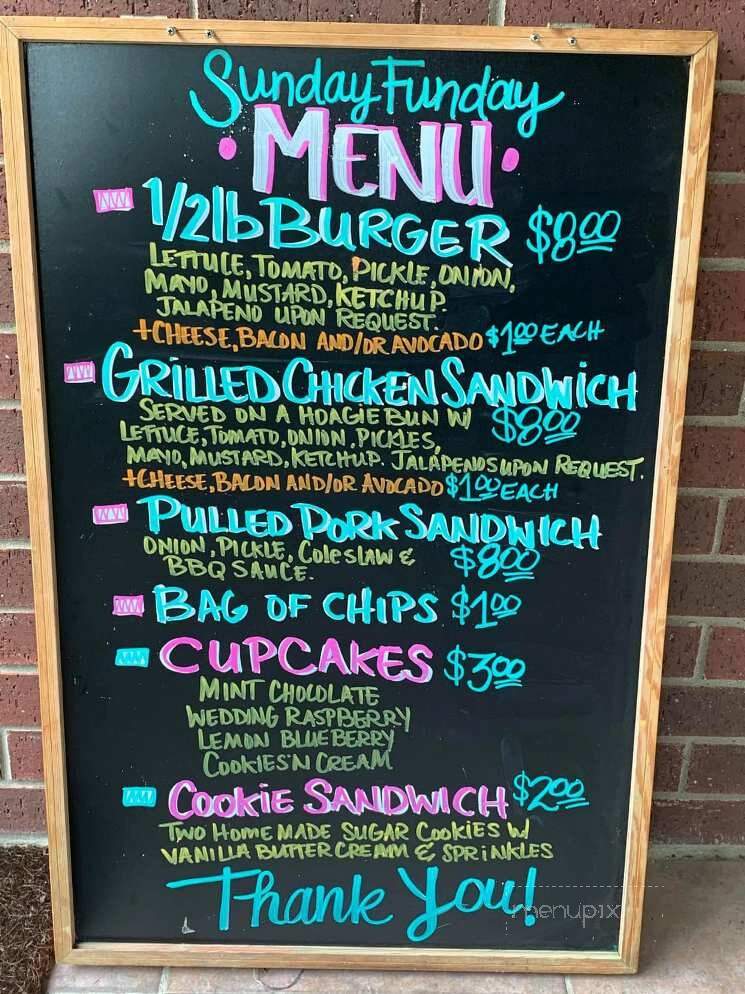 Sunday Funday
MENU
1/2lb BURGER $8.00
LETTUCE, TOMATO, PICKLE, ONION,
MAYO, MUSTARD, KETCHUP.
JALAPENO UPON REQUEST.
+CHEESE, BACON AND/OR AVOCADO $1.00 EACH
GRILLED CHICKEN SANDWICH
SERVED ON A HOAGIE BUN W/ $8.00
LETTUCE, TOMATO, ONION, PICKLES,
MAYO, MUSTARD, KETCHUP. JALAPENOS UPON REQUEST.
+CHEESE, BACON AND/OR AVOCADO $1.00 EACH
PULLED PORK SANDWICH
ONION, PICKLE, Coleslaw & $8.00
BBQ SAUCE.
BAG OF CHIPS $1.00
CUPCAKES $3.00
MINT CHOCOLATE
WEDDING RASPBERRY
LEMON BLUEBERRY
COOKIES'N CREAM
COOKIE SANDWICH $2.00
TWO HOMEMADE SUGAR COOKIES W/
VANILLA BUTTERCREAM & SPRINKLES
Thank You!
menupix